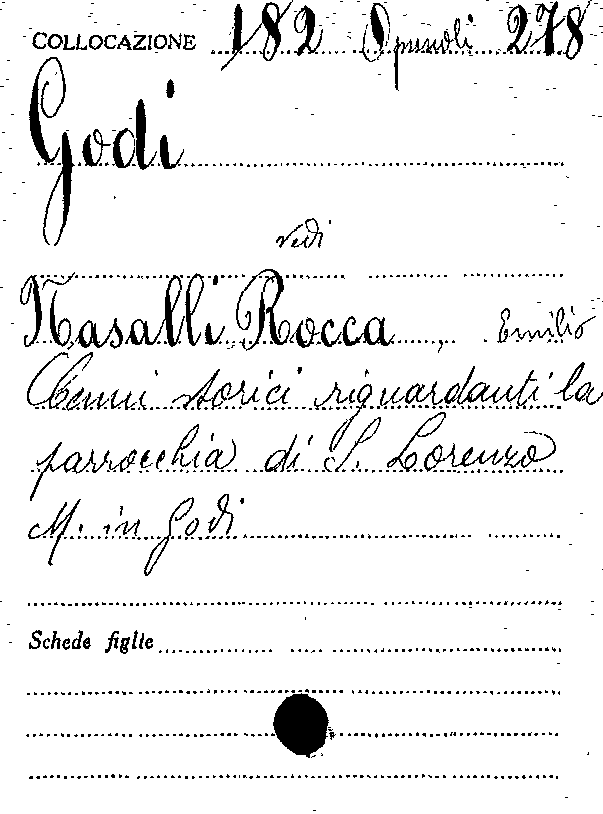 COLLOCAZIONE 182 Opuscoli 278
Godi
vedi
Nasalli Rocca, Emilio
Cenni storici riguardanti la
parrocchia di S. Lorenzo
M. in Godi
Schede figlie